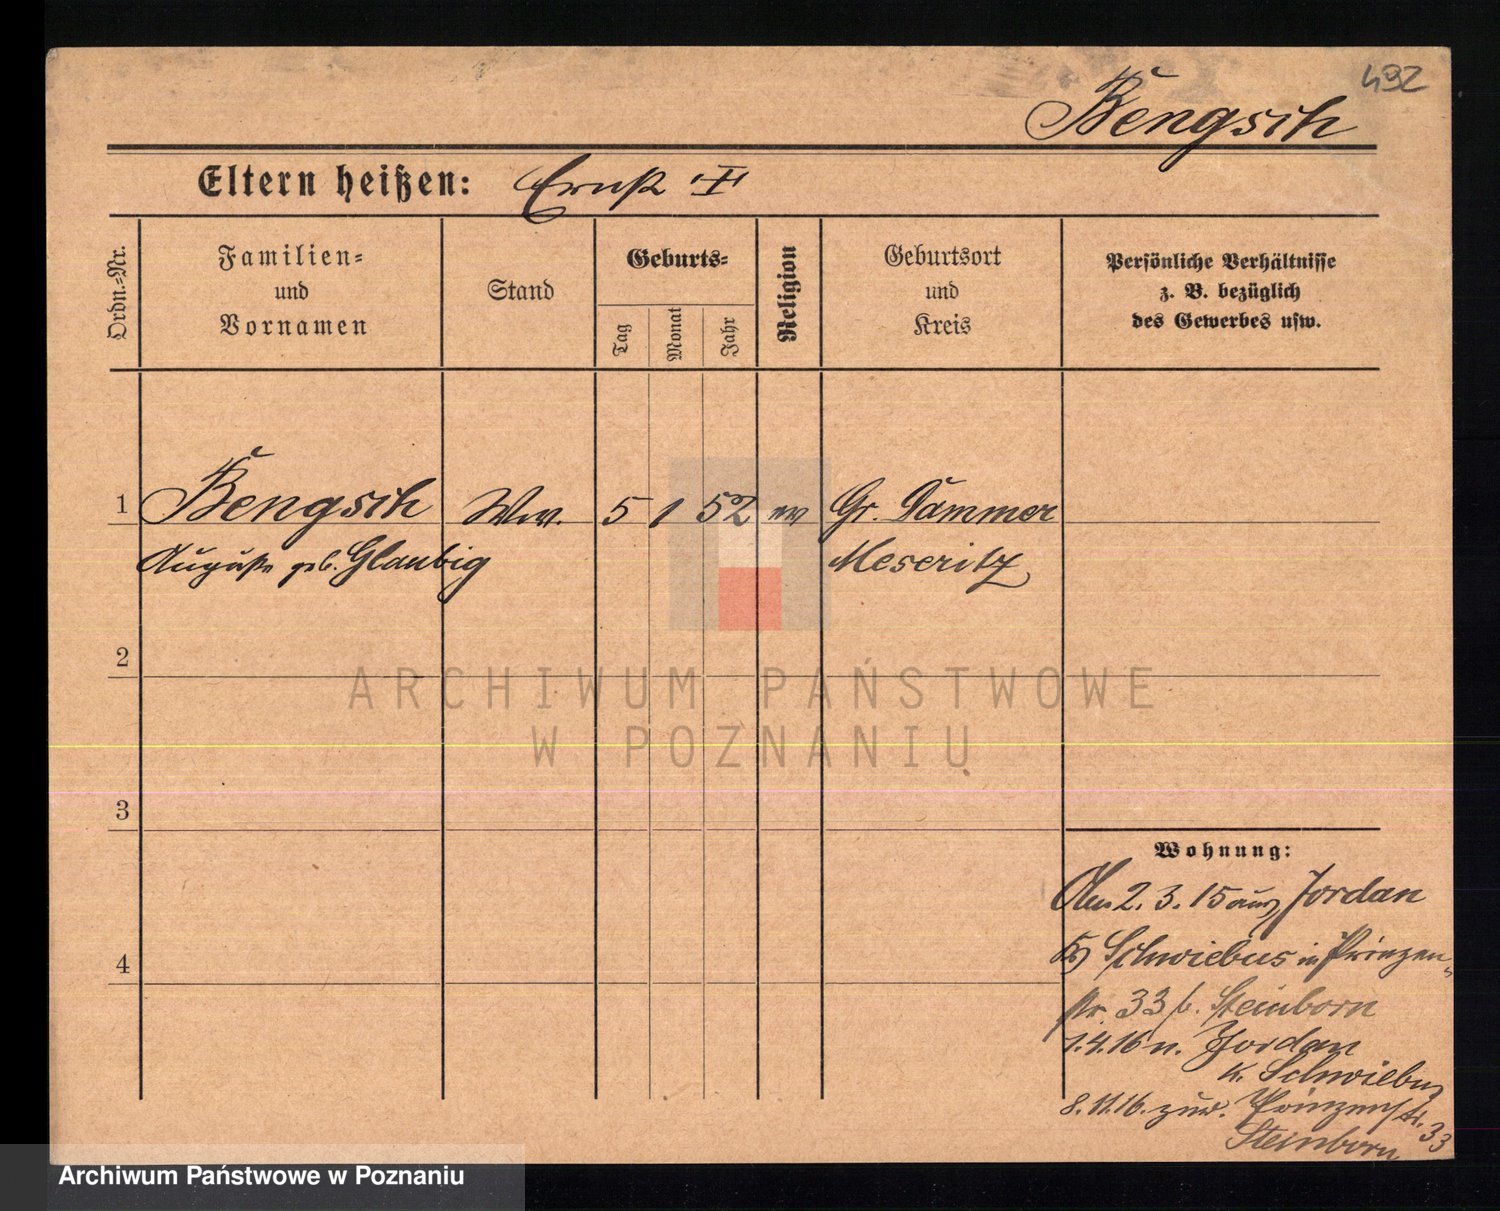 492
Bengsch
Eltern heißen: Ernst I
Ordn.-Nr.
Familien-
und
Vornamen
Stand
Geburts-
Tag
Monat
Jahr
Religion
Geburtsort
und
Kreis
Persönliche Verhältnisse
z. B. bezüglich
des Gewerbes usw.
1 Bengsch Ww. 5 1 52 ev Gr. Dammer
Auguste geb. Glaubig Meseritz
2
ARCHIWUM PAŃSTWOWE
W POZNANIU
3
Wohnung:
2. 3. 15 aus Jordan
4
Schwiebus in Prinzen-
str. 33 b. Steinborn
1.4.16 n. Jordan
K. Schwiebus
8.11.16. zur. Prinzenstr. 33
Steinborn
Archiwum Państwowe w Poznaniu